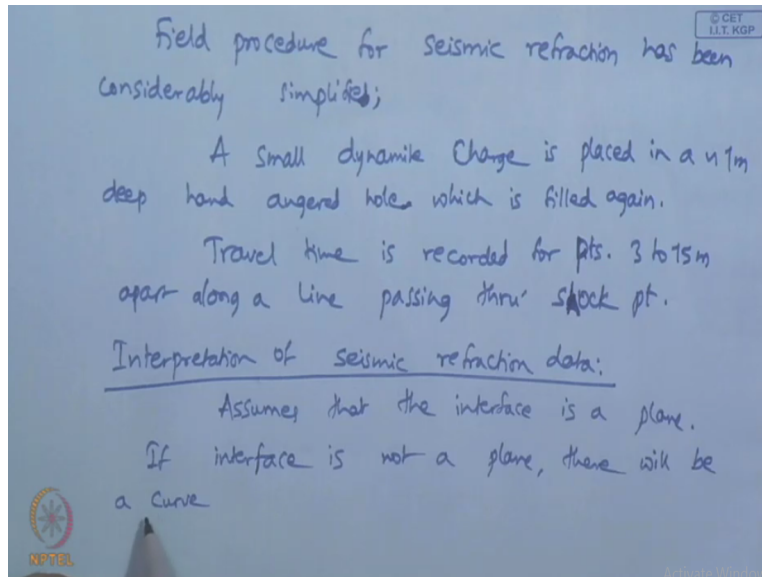 © CET
I.I.T. KGP
Field procedure for seismic refraction has been
considerably simplified;
A small dynamite charge is placed in a ~ 1m
deep hand augered hole which is filled again.
Travel time is recorded for pts. 3 to 15m
apart along a line passing thru' shock pt.
Interpretation of seismic refraction data:
Assumes that the interface is a plane.
If interface is not a plane, there will be
a curve
NPTEL
Activate Windows